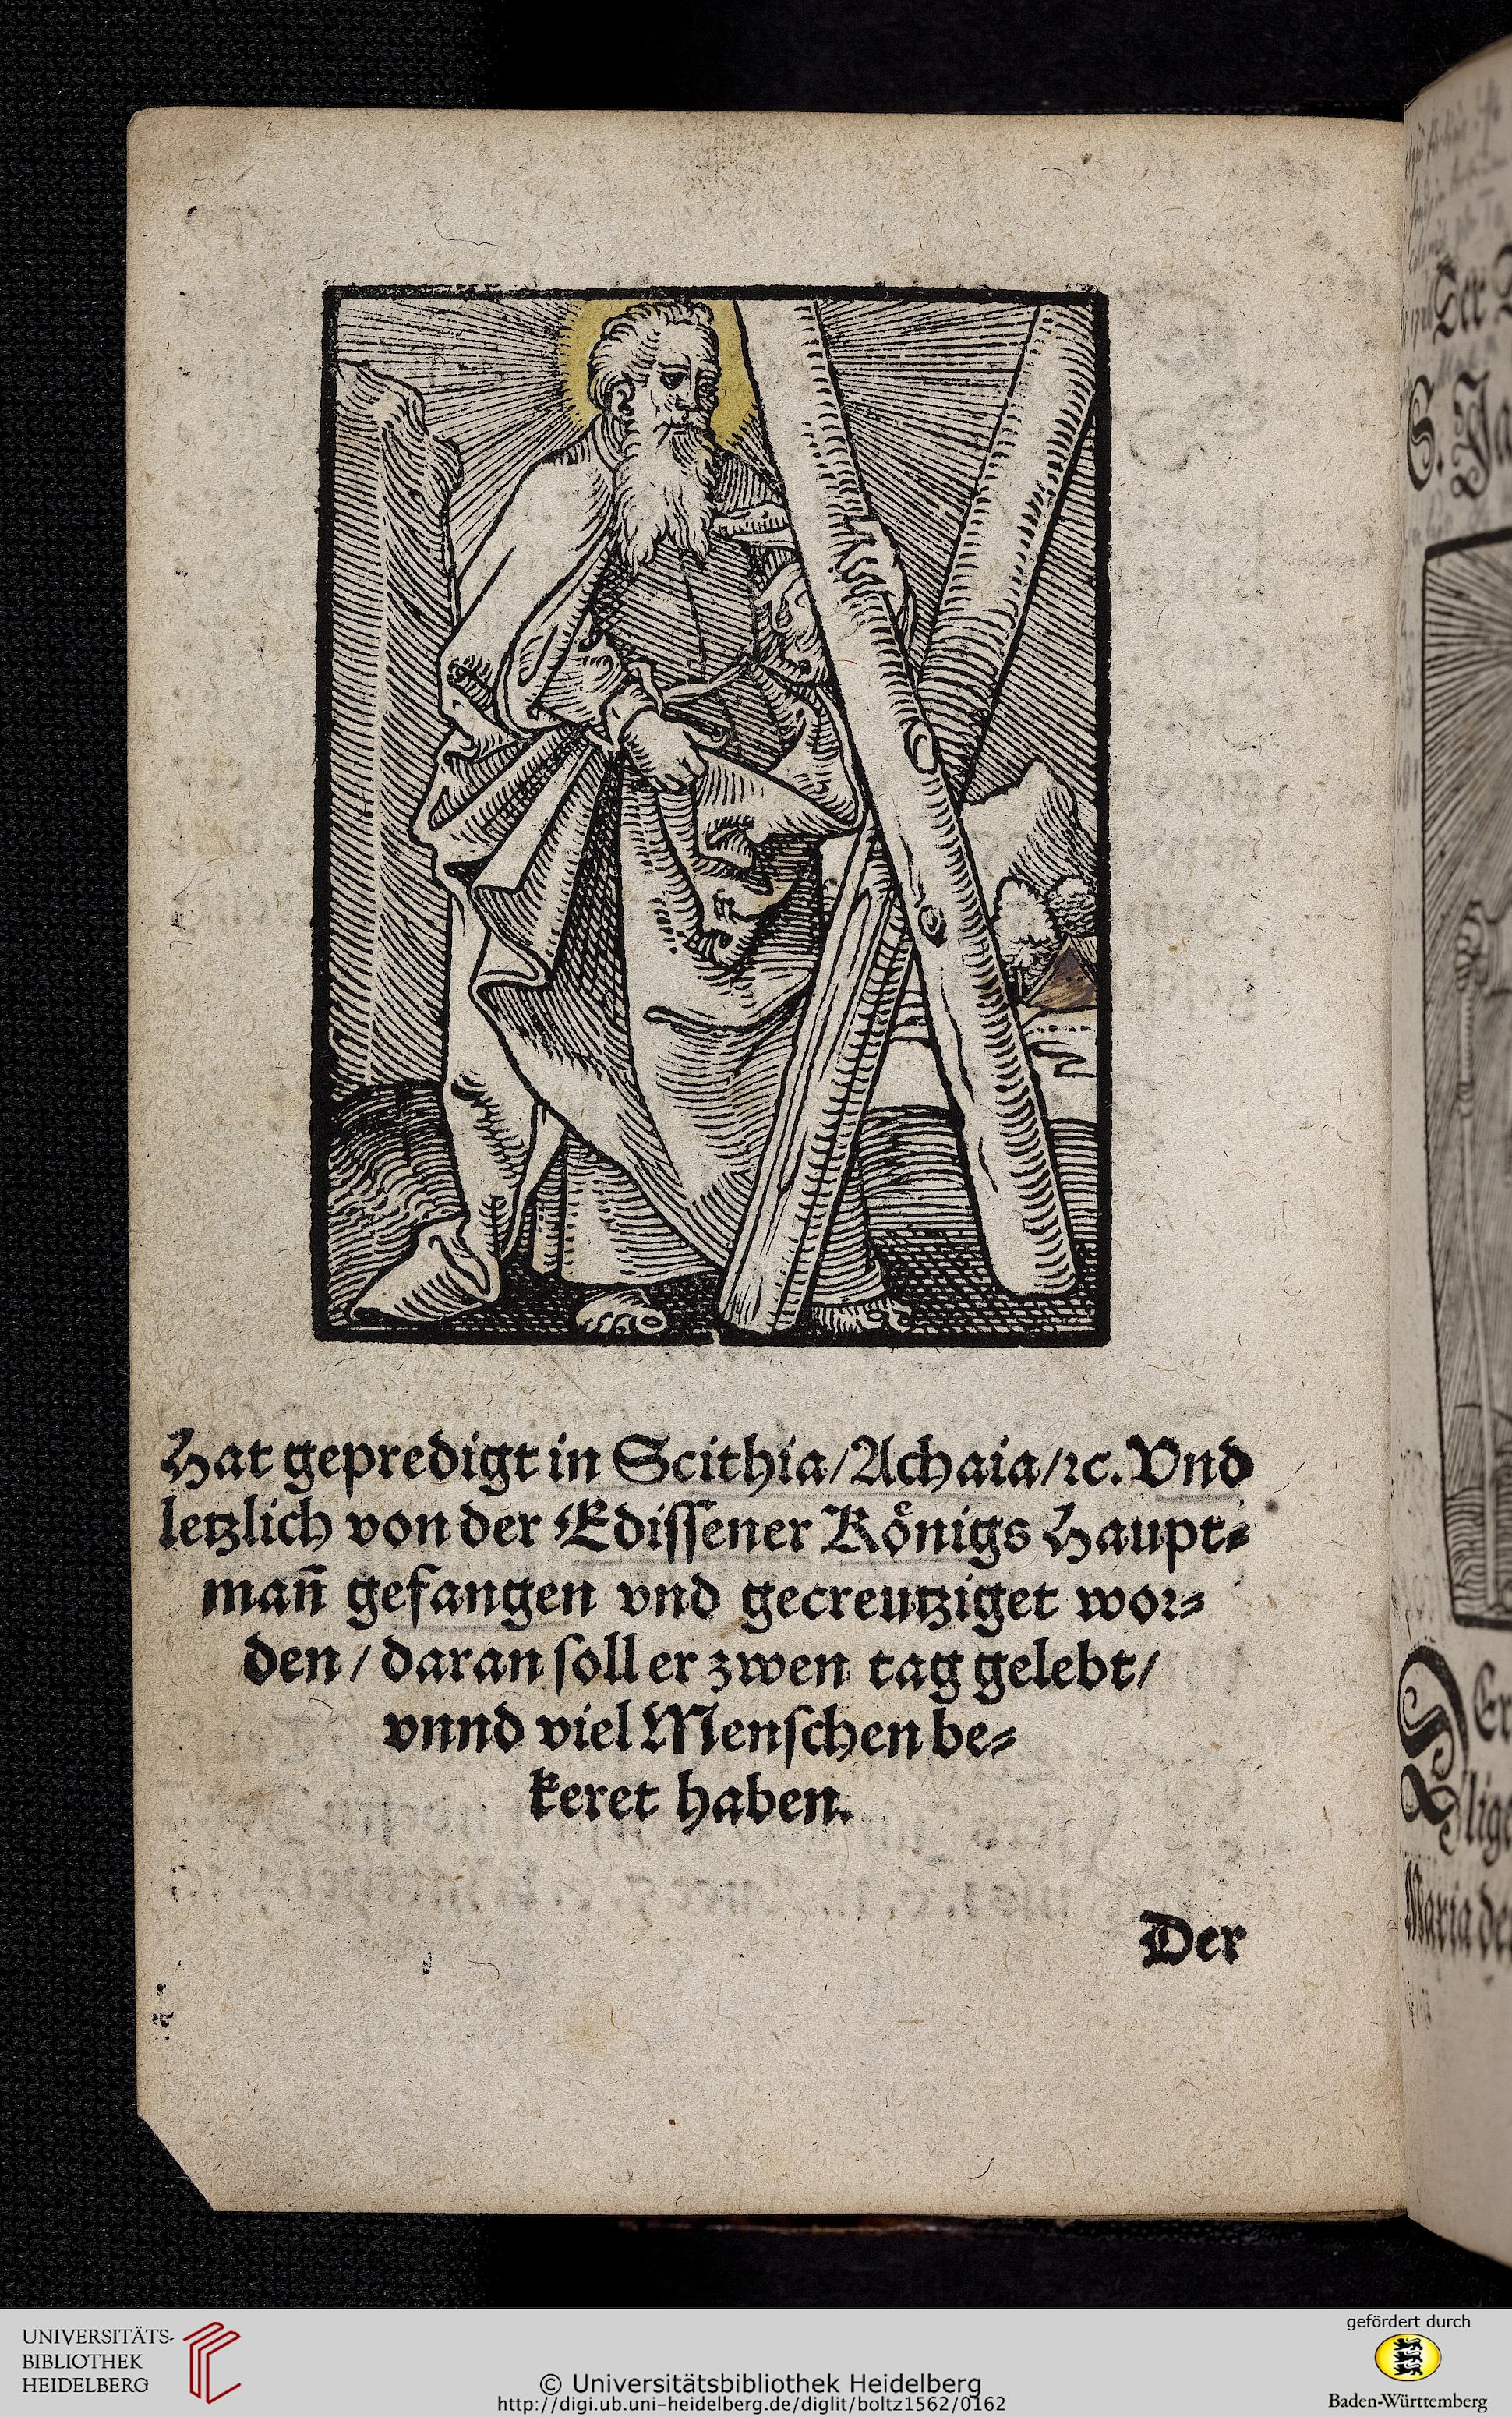 Hat gepredigt in Scithia/Achaia/ꝛc. Vnd
letzlich von der Edissener Koͤnigs Haupt⸗
mañ gefangen vnd gecreutziget wor⸗
den/ daran soll er zwen tag gelebt/
vnnd viel Menschen be⸗
keret haben.
Der
Der
S.
Maria
UNIVERSITÄTS-
BIBLIOTHEK
HEIDELBERG
© Universitätsbibliothek Heidelberg
http://digi.ub.uni-heidelberg.de/diglit/boltz1562/0162
gefördert durch
Baden-Württemberg